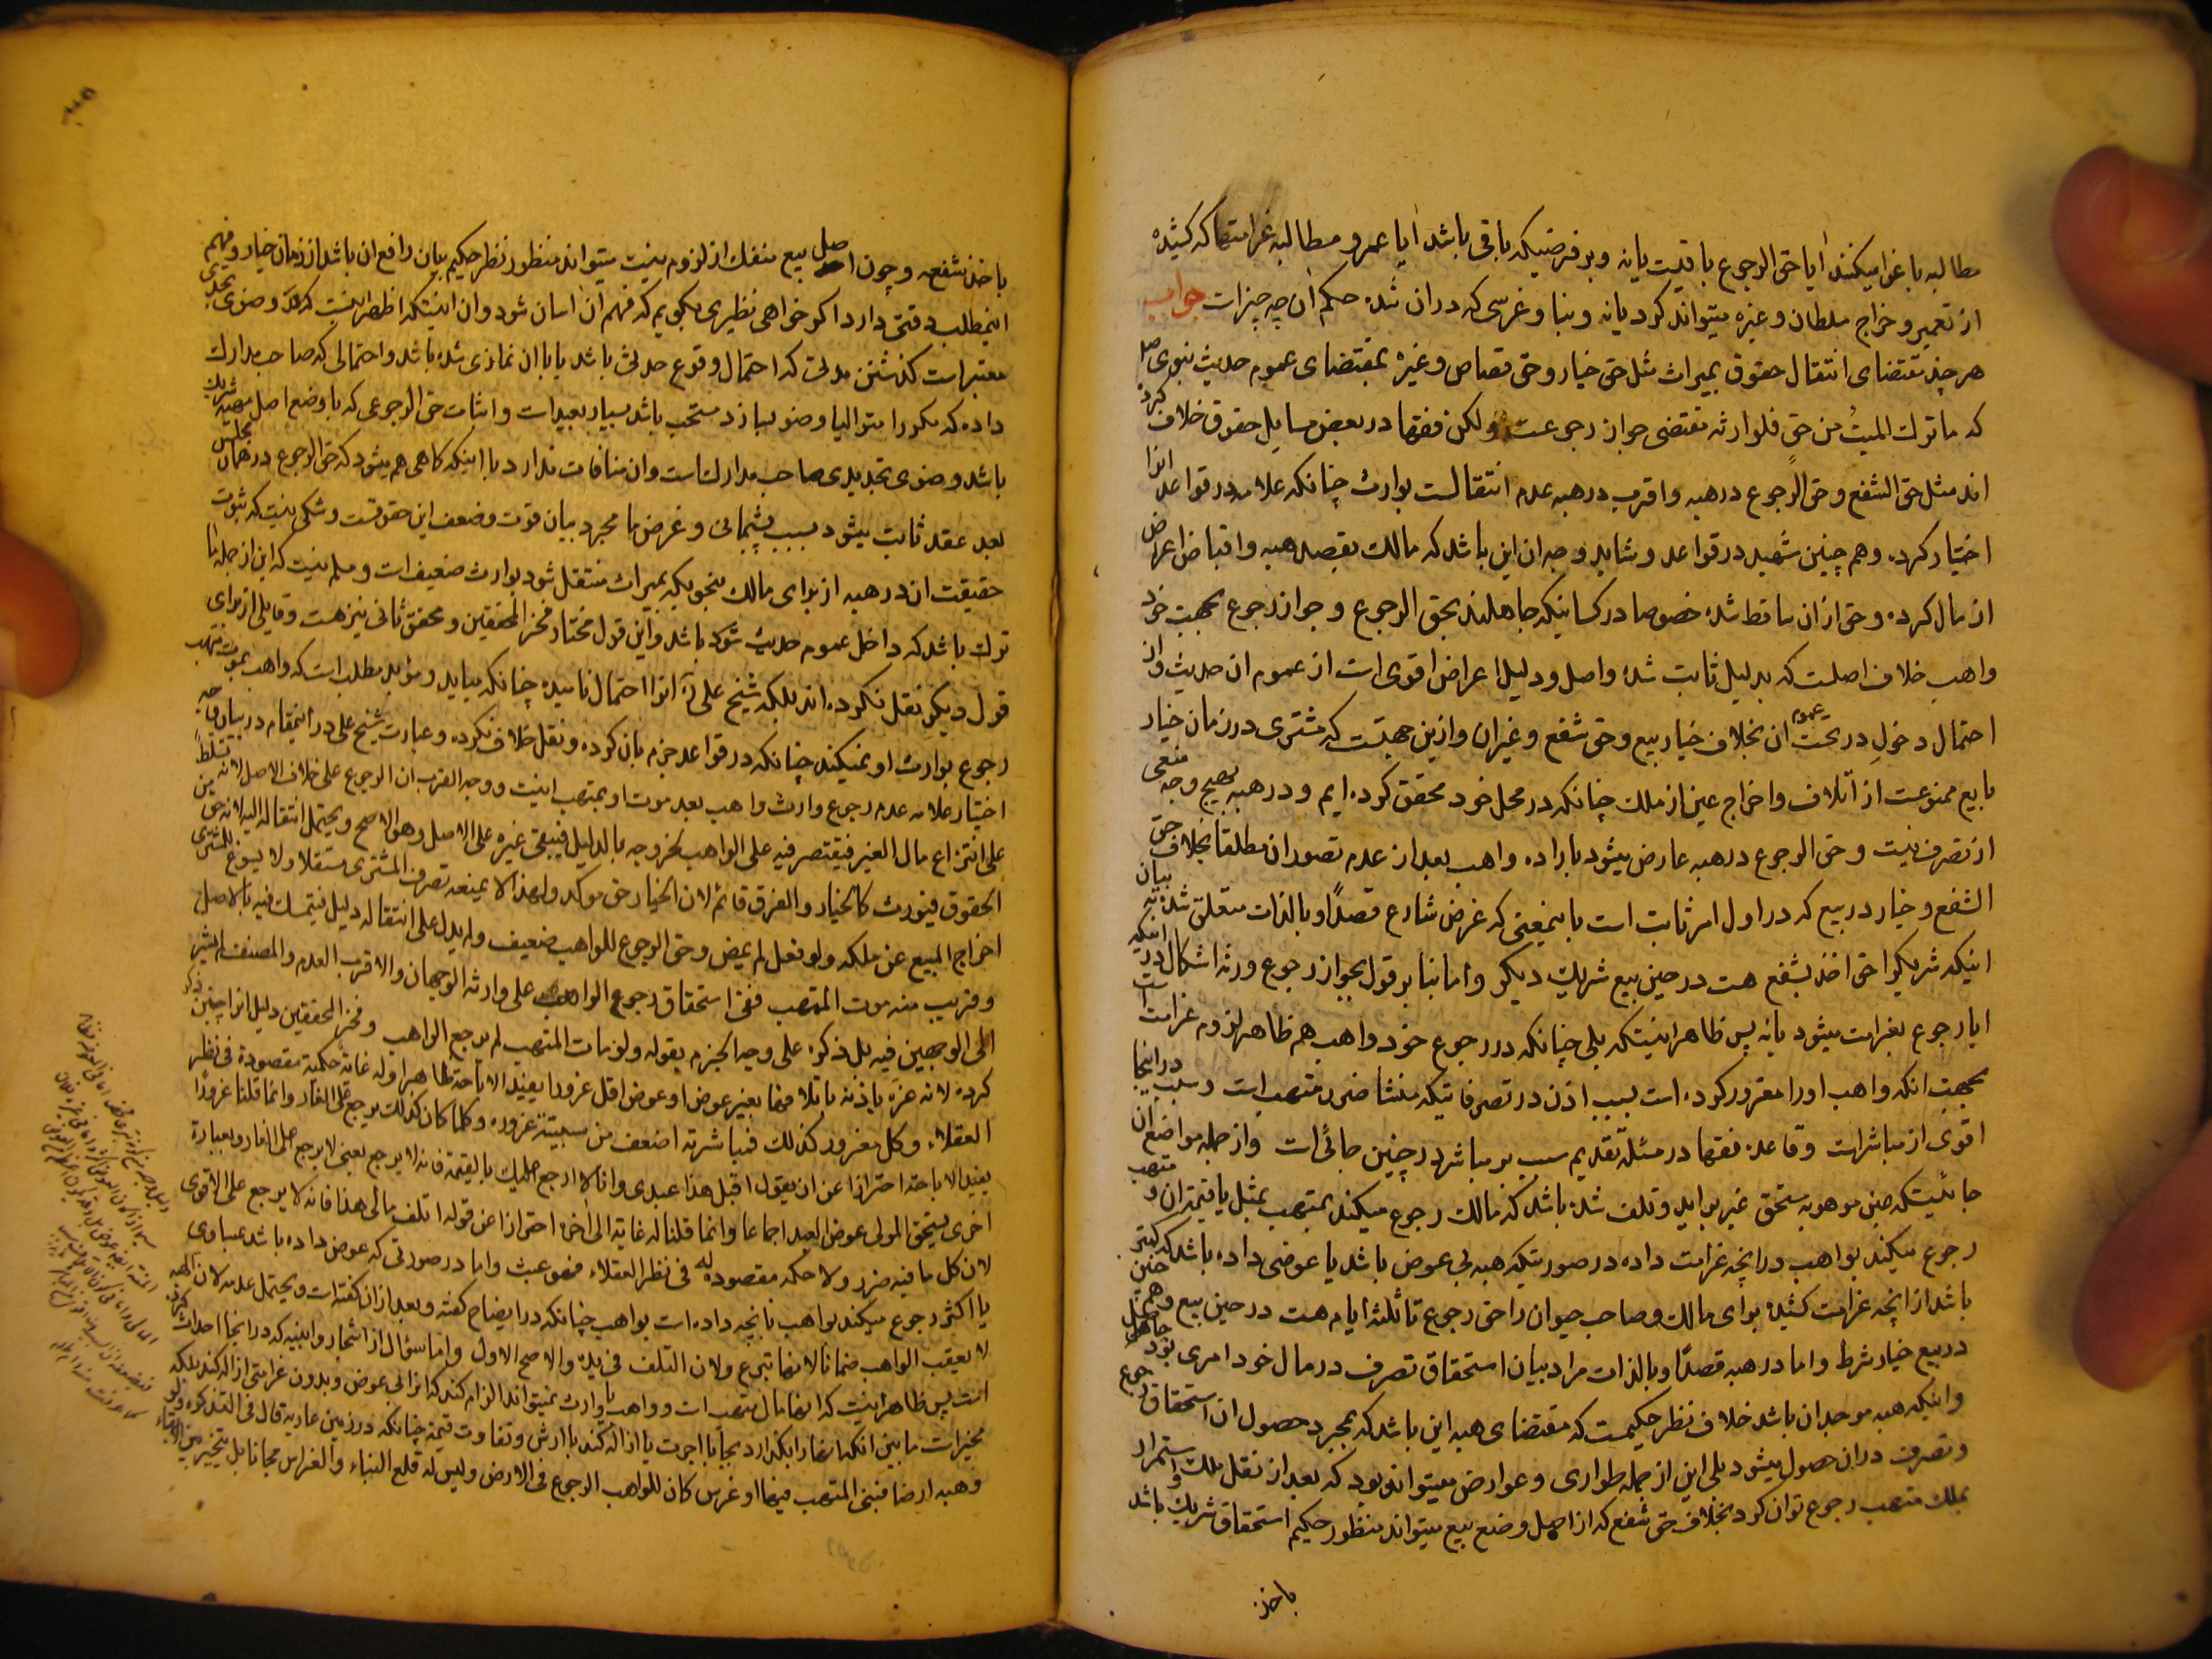 مطالبه باغرا میکنند ایا حق الرجوع باقیست یا نه و بر فرضیکه باقی باشد ایا عمرو مطالبه غرامتها که کشیده
از تعمیر و خراج سلطان و غیره میتواند کرد یا نه و بنا و غرسی که در ان شده حکم ان چه چیز است جواب
هر چند مقتضای انتقال حقوق بمیراث مثل حق خیار و حق قصاص و غیره بمقتضای عموم حدیث نبوی صلع
که ما ترك المیت من حق فلوارثه مقتضی جواز رجوعست ولکن فقها در بعض مسایل حقوق خلاف کرده
اند مثل حق الشفع و حق الرجوع در هبه و اقرب در هبه عدم انتقالست بوارث چنانکه علامه در قواعد انرا
اختیار کرده و هم چنین شهید در قواعد و شاید وجه ان این باشد که مالك بقصد هبه و اقباض اعراض
از مال کرده و حق از ان ساقط شده خصوصا در کسانیکه جاهلند بحق الرجوع و جواز رجوع بجهت خود
واهب خلاف اصلست که بدلیل ثابت شده و اصل و دلیل اعراض اقوی است از عموم ان حدیث و از
احتمال دخول در تحت عموم ان بخلاف خیار بیع و حق شفع و غیر ان و ازین جهتست که مشتری در زمان خیار
بایع ممنوعست از اتلاف و اخراج عین از ملك چنانکه در محل خود محقق کرده ایم و در هبه بهیچ وجه منعی
از تصرف نیست و حق الرجوع در هبه عارض میشود باراده واهب بعد از عدم تصور ان مطلقا بخلاف حق
الشفع و خیار در بیع که در اول امر ثابت است باینمعنی که غرض شارع قصدا و بالذات متعلق شده به بیان
اینکه شریکرا حق اخذ بشفع هست در حین بیع شریك دیگر و اما بنا بر قول بجواز رجوع ورثه اشکال در اینکه
ایا رجوع بغرامت میشود یا نه پس ظاهر اینستکه بلی چنانکه در رجوع خود واهب هم ظاهر لزوم غرامت است
بجهت انکه واهب او را مغرور کرده است بسبب اذن در تصرفاتیکه منشا ضرر متهب است و سبب در اینجا
اقوی از مباشر است و قاعده فقها در مسئله تقدیم سبب بر مباشر در چنین جائی است و از جمله مواضع ان
جائیستکه عین موهوبه مستحق غیر براید و تلف شده باشد که مالك رجوع میکند بمتهب بمثل یا قیمة ان و متهب
رجوع میکند بواهب در انچه غرامت داده در صورتیکه هبه بی عوض باشد یا عوضی داده باشد که کمتر
باشد از انچه غرامت کشیده برای مالك و صاحب حیوان را حق رجوع تا ثلثه ایام هست در حین بیع و هم چنین
در بیع خیار شرط و اما در هبه قصدا و بالذات مراد بیان استحقاق تصرف در مال خود امری بود حاصل
و اینکه هبه موجد ان باشد خلاف نظر حکیمست که مقتضای هبه این باشد که بمجرد حصول ان استحقاق رجوع
و تصرف در ان حصول میشود بلی این از جمله طواری و عوارض میتواند بود که بعد از نقل ملك و استمرار
بملك متهب رجوع توان کرد بخلاف حق شفع که از اصل وضع بیع میتواند منظور حکیم استحقاق شریك باشد
باخذ
باخذ بشفعه و چون اصل بیع منفك از لزوم نیست میتواند منظور نظر حکیم بیان رافع ان باشد از زمان خیار و فهم
اینمطلب دقتی دارد اکر خواهی نظیری بکویم که فهم ان اسان شود و ان اینستکه اظهر اینست که در وضوی تجدیدی
معتبر است کذشتن مدتی که احتمال وقوع حدثی باشد یا با ان نمازی شده باشد و احتمالی که صاحب مدارك
داده که مکررا متوالیا وضو بسازد مستحب باشد بسیار بعید است و اثبات حق الرجوعی که با وضع اصل هبه شریك
باشد وضوی تجدیدی صاحب مدارك است و ان منافات ندارد با اینکه کاهی هم میشود که حق الرجوع در همان مجلس
بعد عقد ثابت میشود بسبب پشیمانی و غرض ما مجرد بیان قوت و ضعف این حقوقست و شکی نیست که ثبوت
حقیقت ان در هبه از برای مالك بنحویکه بمیراث منتقل شود بوارث ضعیف است و مسلم نیست که این از جمله ما
ترك باشد که داخل عموم حدیث تواند باشد و این قول مختار فخر المحققین و محقق ثانی نیز هست و قایلی از برای
قول دیکر نقل نکرده اند بلکه شیخ علی ره انرا احتمال نامیده چنانکه بیاید و مؤید مطلب است که واهب بموت متهب
رجوع بوارث او نمیکند چنانکه در قواعد جزم بان کرده و نقل خلاف نکرده و عبارت شیخ علی در اینمقام در بیان وجه
اختیار علامه عدم رجوع وارث واهب بعد موت او بمتهب اینست و وجه القرب ان الرجوع علی خلاف الاصل لانه تسلط
علی انتزاع مال الغیر فیقتصر فیه علی الواهب لخروجه بالدلیل فیبقی غیره علی الاصل وهو الاصح و یحتمل انتقاله الیه لانه حق من
الحقوق فیورث کالخیار و الفرق قائم لان الخیار حق موکد ولهذا لا یمنعه تصرف المشتری مستقلا ولا یسوغ للمشتری
اخراج المبیع عن ملکه ولو فعل لم یمض و حق الرجوع للواهب ضعیف ولم یدل علی انتقاله دلیل فیتمسك فیه بالاصل
و قریب منه موت المتهب ففی استحقاق رجوع الواهب علی وارثه الوجهان والاقرب العدم والمصنف لم یشر
الی الوجهین فیه بل ذکره علی وجه الجزم بقوله ولو مات المتهب لم یرجع الواهب و فخر المحققین دلیل انرا چنین ذکر
کرده لانه غره باذنه باتلافها بغیر عوض او عوض اقل غرورا یفید الاباحة ظاهرا وله غایة حکمیة مقصودة فی نظر
العقلاء وکل مغرور کذلك فمباشرته اضعف من سببیة غروره وکلما کان کذلك یرجع علی الغار وانما قلنا غرورا
یفید الاباحة احترازا عن ان یقول اقبل هذا عبدی وانا لا ارجع علیك بالقیمة فانه لا یرجع یعنی لا یرجع علی الغار و بعبارة
اخری یستحق المولی عوض العبد اجماعا وانما قلنا له غایة الی اخره احترازا عن قوله اتلف مالی هذا فانه لا یرجع علی الاقوی
لان کل ما فیه ضرر ولا حکمه مقصودة له فی نظر العقلاء فهو عبث و اما در صورتی که عوض داده باشد مساوی
یا اکثر رجوع میکند بواهب بانچه داده است بواهب چنانکه در ایضاح کفته و بعد از ان کفته است و یحتمل عدمه لان الهبة
لا یعقب الواهب ضمانا لانها تبرع ولان التلف فی یده والاصح الاول و اما سؤال از اشجار و ابنیه که در انجا احداث شده
است پس ظاهر اینست که انها مال متهب است و واهب یا وارث نمیتواند الزام کند که انرا بی عوض و بدون غرامتی ازاله کند بلکه
مخیر است ما بین انکه انها را بکذارد بجا با اجرت یا ازاله کند با ارش و تفاوت قیمت چنانکه در زمین عاریه قال فی التذکره ولو
وهبه ارضا فبنی المتهب فیها او غرس کان للواهب الرجوع فی الارض ولیس له قلع البناء والغراس مجانا بل یتخیر بین الابقاء